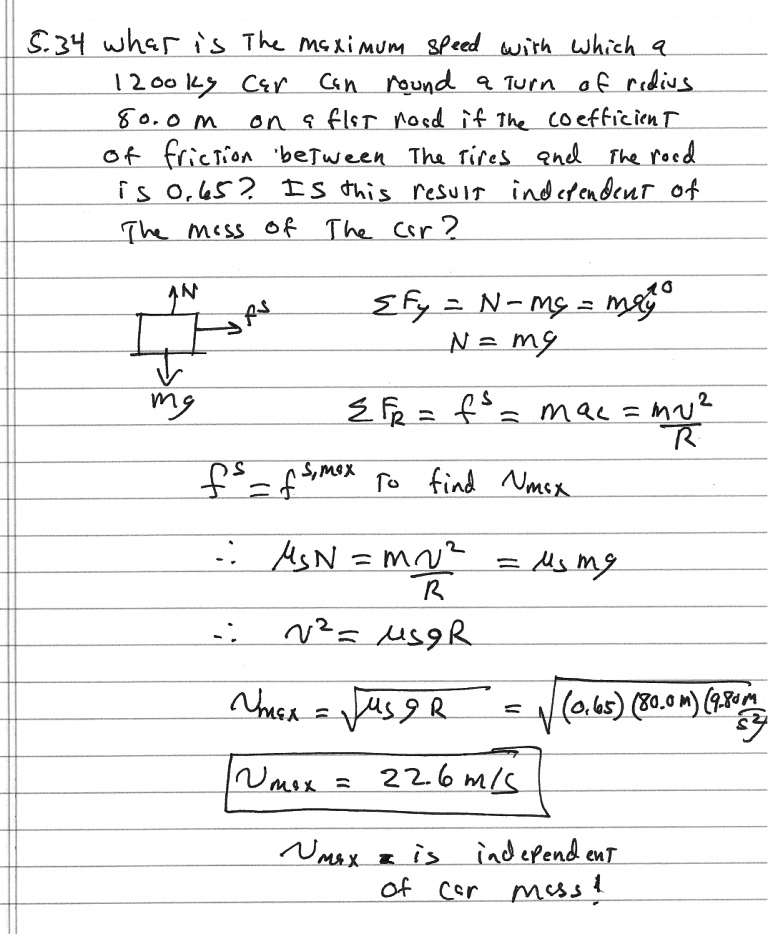 5.34 What is The maximum speed with which a
1200 kg car can round a Turn of radius
80.0 m on a flat road if The coefficient
of friction between The Tires and The road
is 0.65? Is this result independent of
The mass of The car?
N
fˢ
mg
ΣFy = N - mg = may⁰
N = mg
ΣFR = fˢ = mac = mv²/R
fˢ = fˢ,ᵐᵃˣ To find vmax
∴ μsN = mv²/R = μsmg
∴ v² = μsgR
vmax = √μsgR = √(0.65)(80.0m)(9.80m/s²)
vmax = 22.6 m/s
vmax is independent
of car mass!